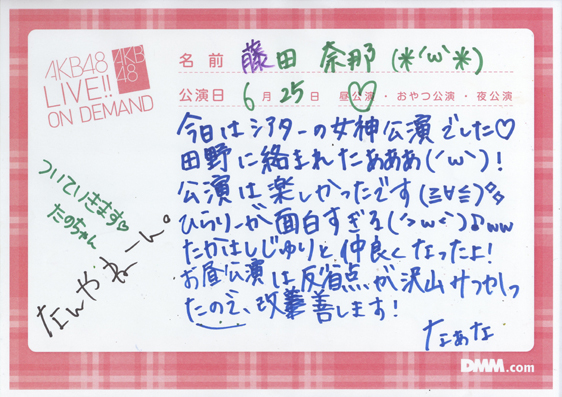 AKB48
LIVE!!
ON DEMAND
AKB
48
名前 藤田 奈那 (*´ω`*)
公演日 6月25日 昼公演・おやつ公演・夜公演
今日はシアターの女神公演でした♡
田野に絡まれたあああ(´ω`)!
公演は楽しかったです(≧∀≦)
ひらりーが面白すぎる(´>ω<`)♪ww
たかはしじゅりと仲良くなったよ!
お昼公演は反省点が沢山みつかっ
たので、改善します!
なぁな
ついていきます♡
たのちゃん
なんやねーん。
DMM.com